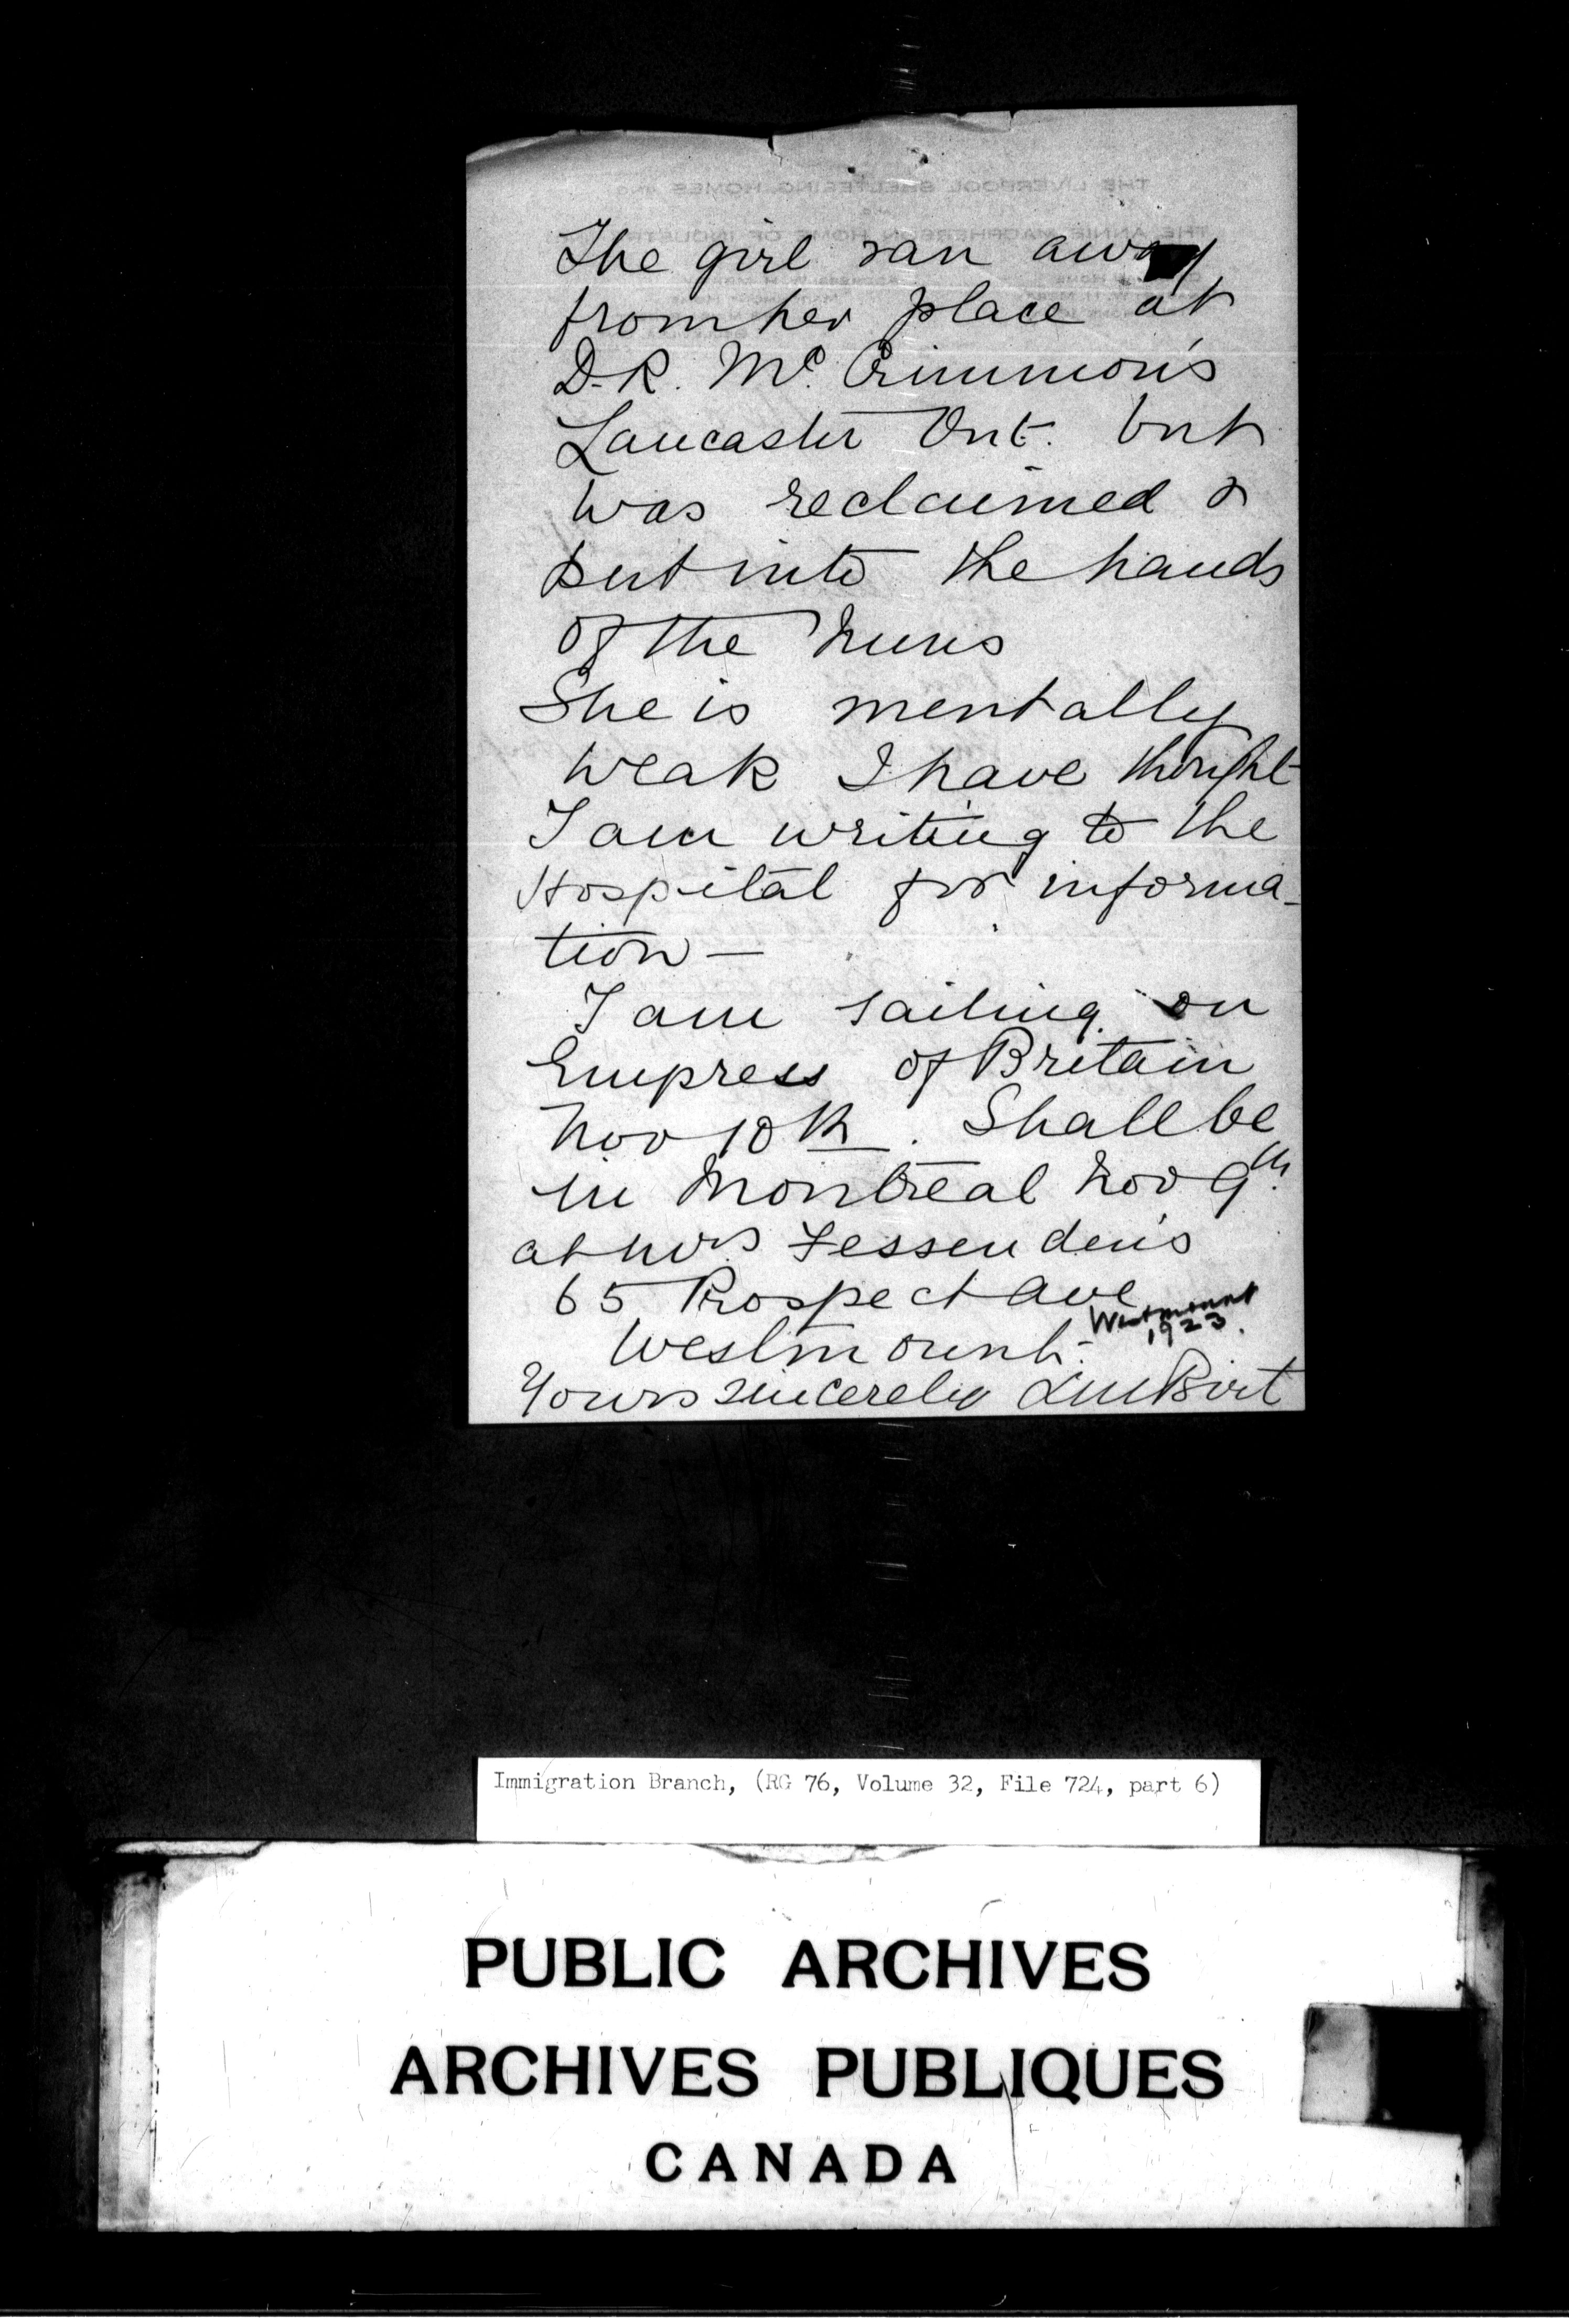 The girl ran away
from her place at
D. R. Mc. Crimmon's
Lancaster Ont. but
was reclaimed &
put into the hands
of the Nuns
She is mentally
weak I have thought
I am writing to the
Hospital for informa-
tion —
I am sailing on
Empress of Britain
Nov 10th. Shall be
in Montreal Nov 9th.
at Mrs Fessenden's
65 Prospect Ave
Westmount
1923.
Westmount.
Yours sincerely L M Birt
Immigration Branch, (RG 76, Volume 32, File 724, part 6)
PUBLIC ARCHIVES
ARCHIVES PUBLIQUES
CANADA